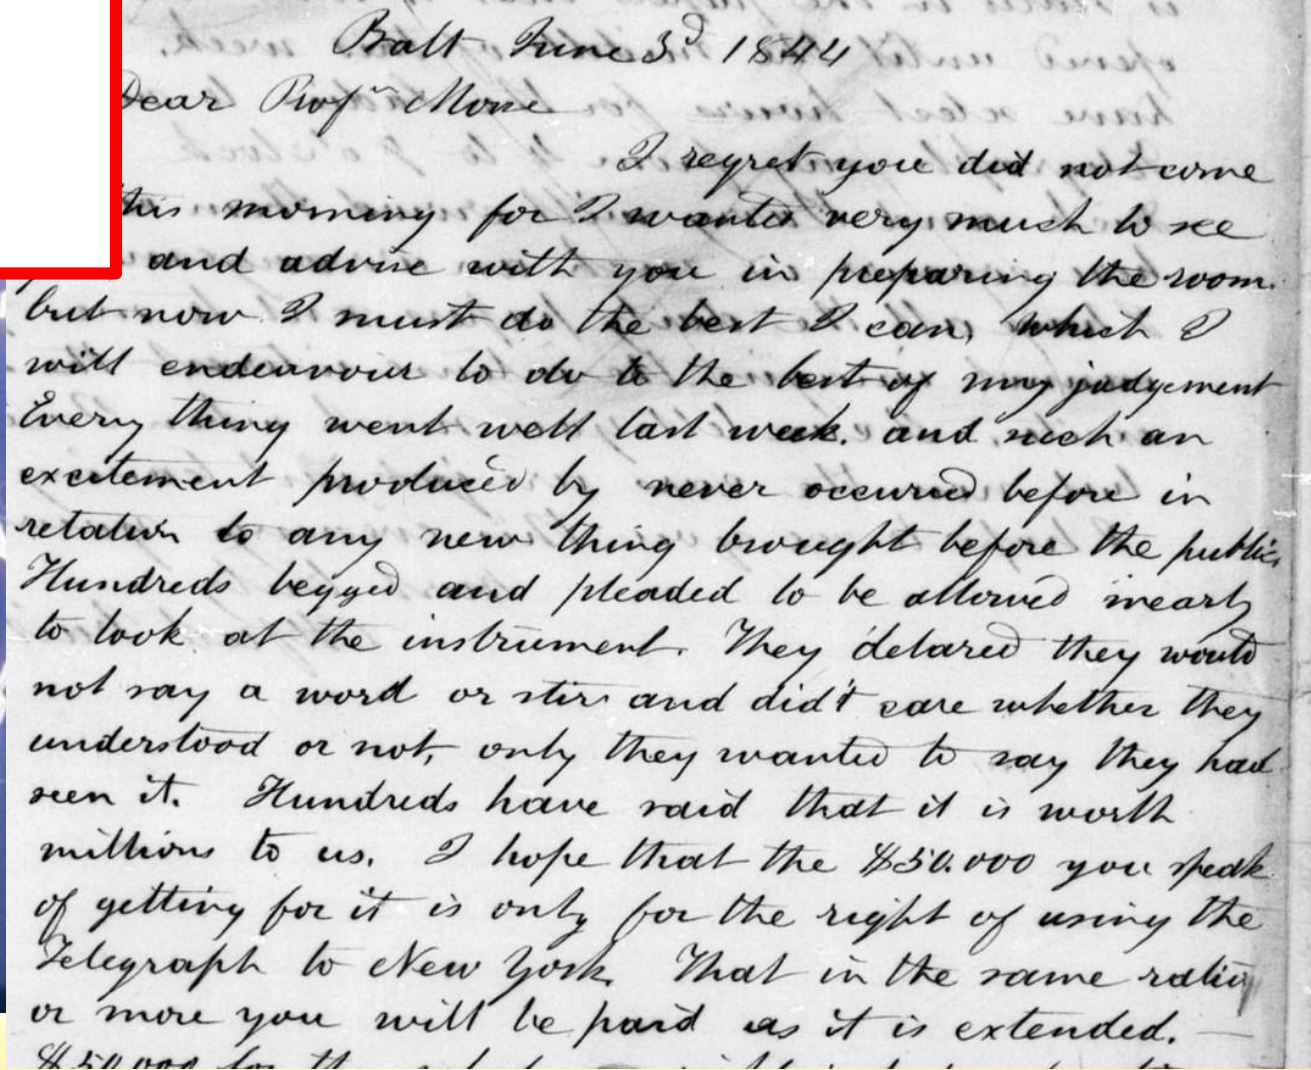 Balt June 3d 1844
Dear Profr Morse
I regret you did not come
this morning for I wanted very much to see
and advise with you in preparing the room.
but now I must do the best I can, which I
will endeavour to do to the best of my judgement
Every thing went well last week. and such an
excitement produced by never occurred before in
relation to any new thing brought before the public,
Hundreds begged and pleaded to be allowed mearly
to look at the instrument. They delared they would
not say a word or stir and did't care whether they
understood or not, only they wanted to say they had
seen it. Hundreds have said that it is worth
millions to us. I hope that the $50.000 you speak
of getting for it is only for the right of using the
Telegraph to New York. That in the same ratio
or more you will be paid as it is extended. —
$50,000 for the